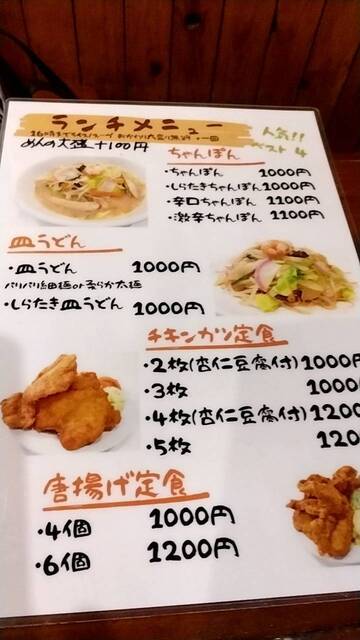 ランチメニュー
人気!!
ベスト4
めんの大盛 +100円
ちゃんぽん
・ちゃんぽん 1000円
・しらたきちゃんぽん 1000円
・辛口ちゃんぽん 1100円
・激辛ちゃんぽん 1200円
皿うどん
・皿うどん 1000円
パリパリ細麺or柔らか太麺
・しらたき皿うどん 1000円
チキンカツ定食
・2枚(杏仁豆腐付) 1000円
・3枚 1000
・4枚(杏仁豆腐付) 1200
・5枚 120
唐揚げ定食
・4個 1000円
・6個 1200円